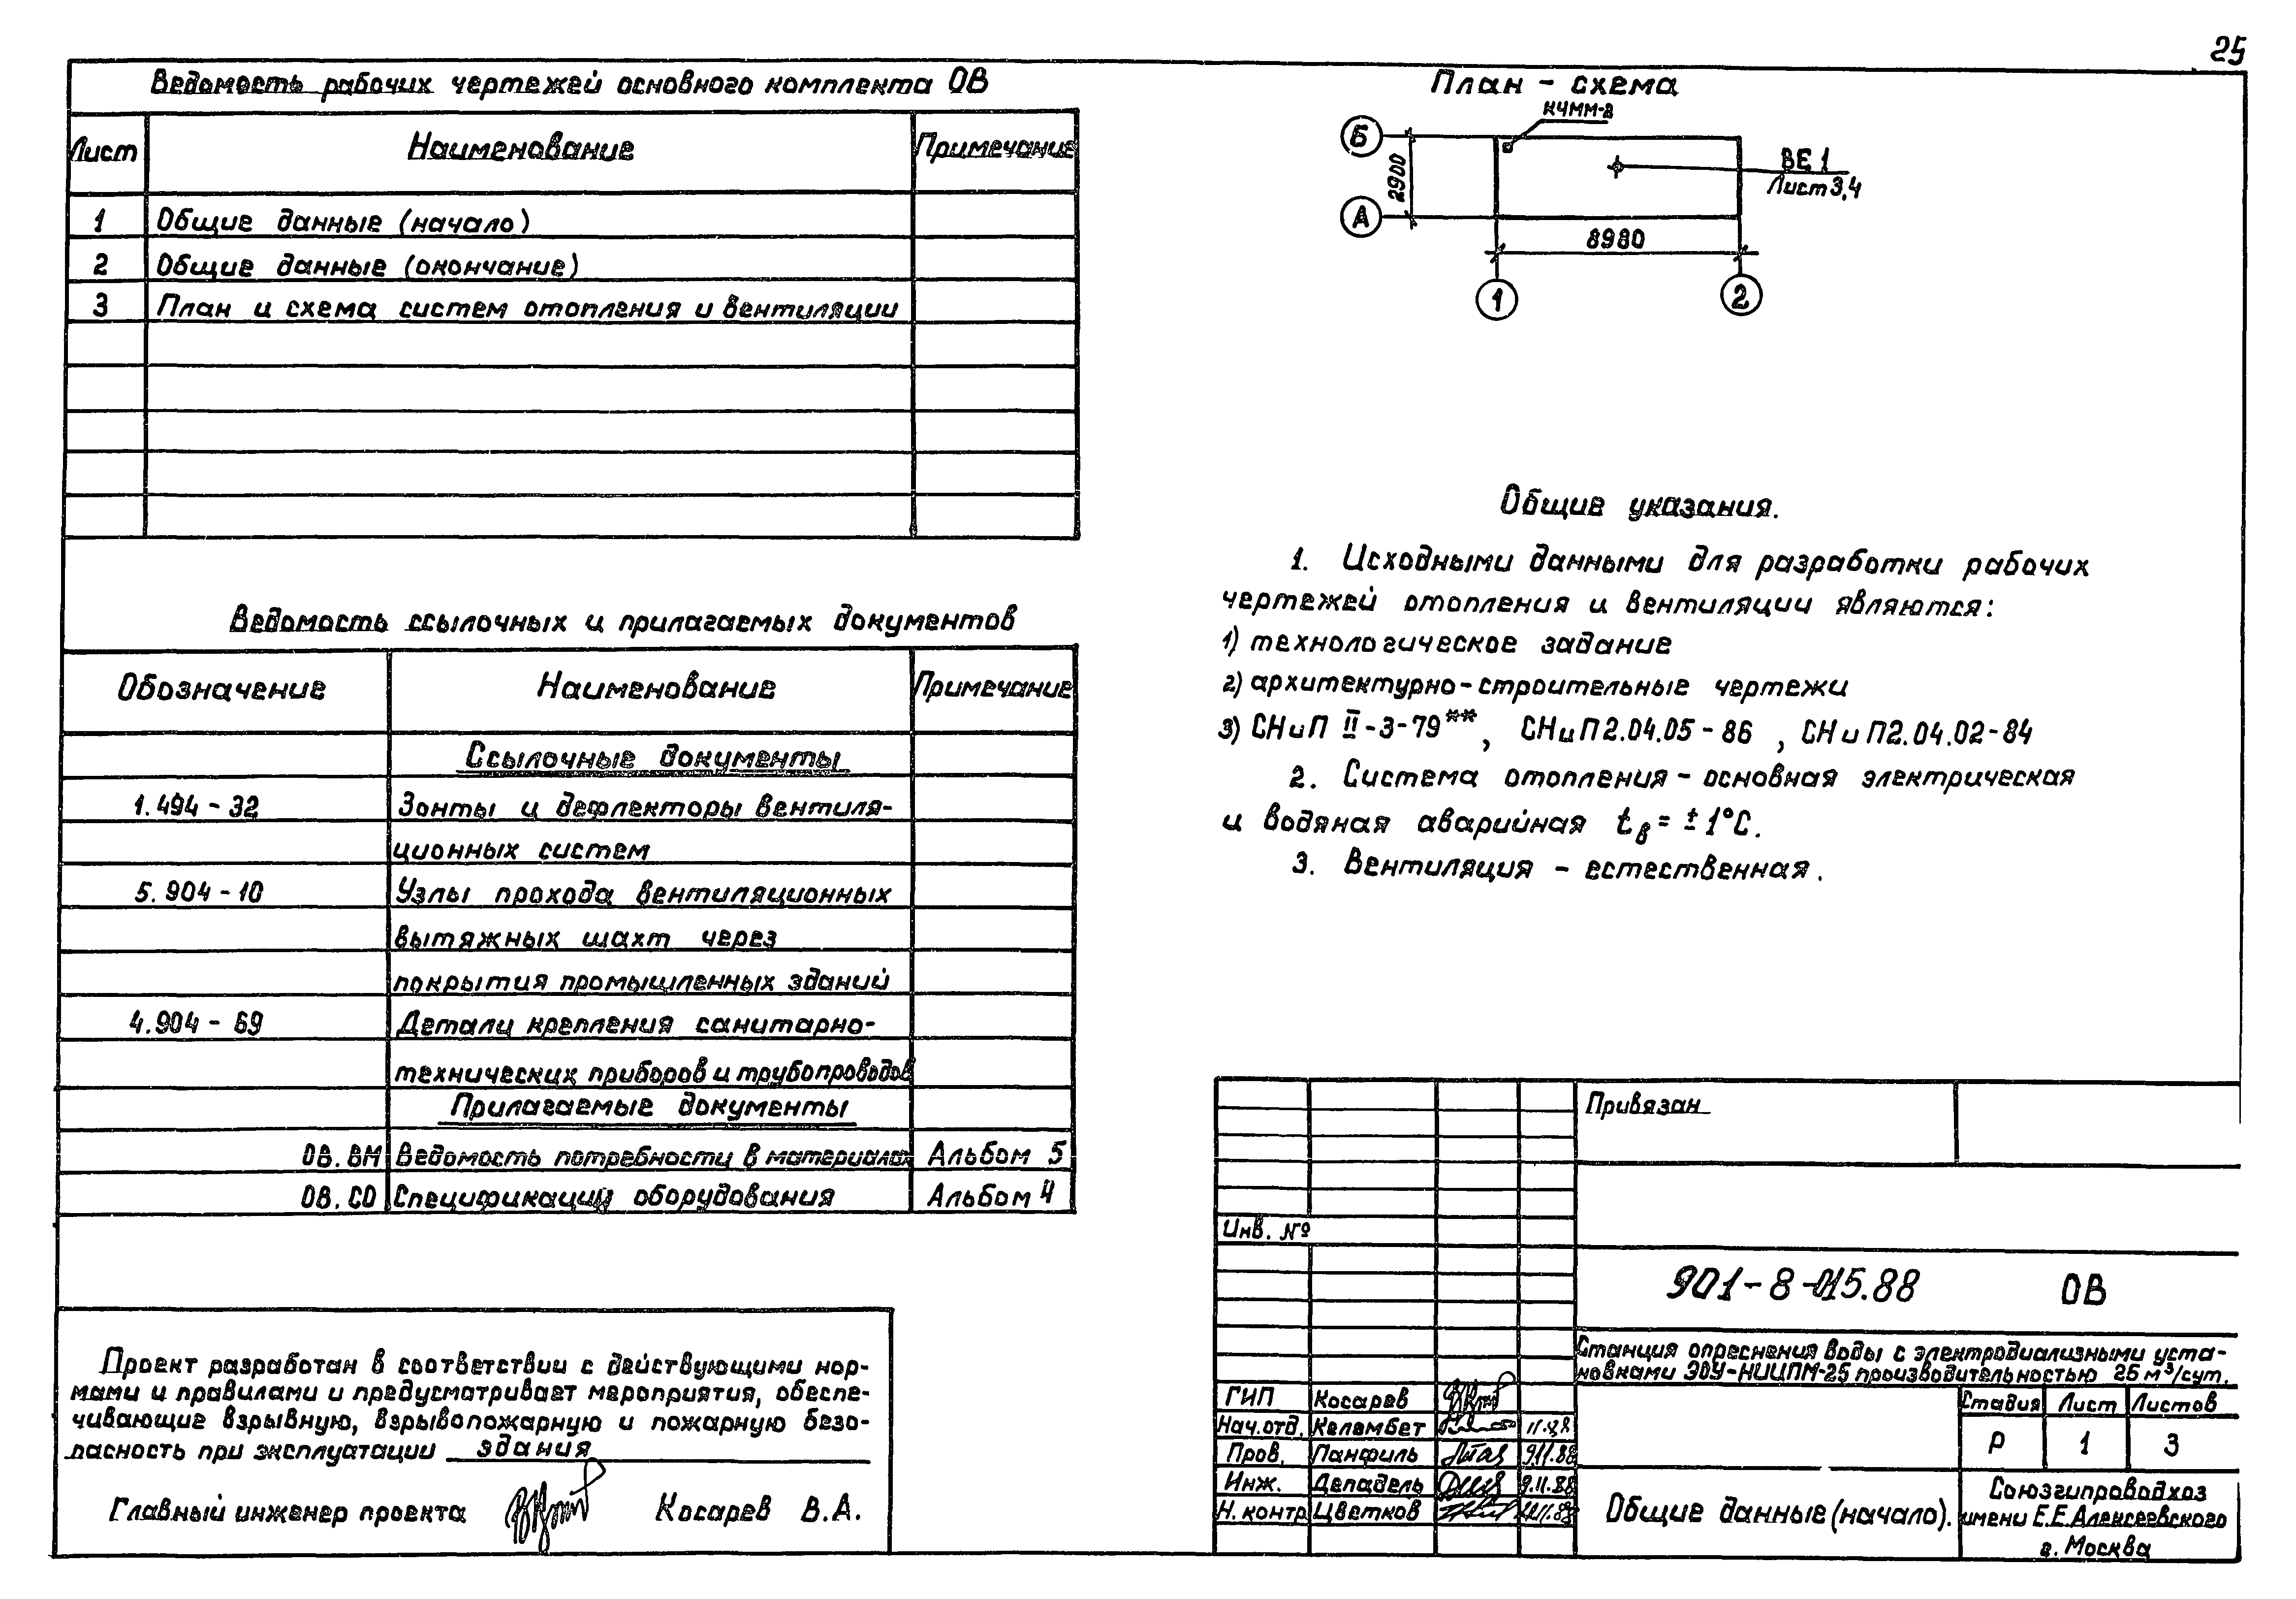 25
Ведомость рабочих чертежей основного комплекта ОВ
Лист Наименование Примечание
1 Общие данные (начало)
2 Общие данные (окончание)
3 План и схема систем отопления и вентиляции
Ведомость ссылочных и прилагаемых документов
Обозначение Наименование Примечание
Ссылочные документы
1.494-32 Зонты и дефлекторы вентиля-
ционных систем
5.904-10 Узлы прохода вентиляционных
вытяжных шахт через
покрытия промышленных зданий
4.904-69 Детали крепления санитарно-
технических приборов и трубопроводов
Прилагаемые документы
ОВ.ВМ Ведомость потребности в материалах Альбом 5
ОВ.СО Спецификации оборудования Альбом 4
Проект разработан в соответствии с действующими нор-
мами и правилами и предусматривает мероприятия, обеспе-
чивающие взрывную, взрывопожарную и пожарную безо-
пасность при эксплуатации здания
Главный инженер проекта Косарев В.А.
План - схема
КЧММ-2
Б
2900
ВЕ1
Лист 3,4
А
8980
1 2
Общие указания.
1. Исходными данными для разработки рабочих
чертежей отопления и вентиляции являются:
1) технологическое задание
2) архитектурно-строительные чертежи
3) СНиП II-3-79**, СНиП2.04.05-86, СНиП2.04.02-84
2. Система отопления - основная электрическая
и водяная аварийная tв = ±1°С.
3. Вентиляция - естественная.
Привязан
Инв. №
901-8-015.88 ОВ
Станция опреснения воды с электродиализными уста-
новками ЭОУ-НИИПМ-25 производительностью 25 м³/сут.
ГИП Косарев
Нач.отд. Келембет
Пров. Панфиль 9.11.88
Инж. Депадель 9.11.88
Н. контр Цветков
Стадия Лист Листов
Р 1 3
Общие данные (начало).
Союзгипроводхоз
имени Е.Е.Алексеевского
г. Москва